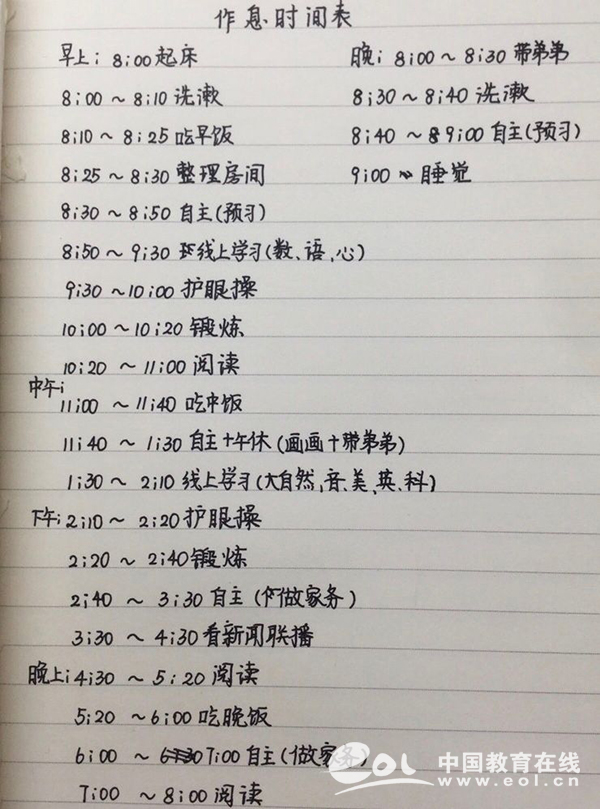 作息时间表
早上: 8:00 起床
8:00 ~ 8:10 洗漱
8:10 ~ 8:25 吃早饭
8:25 ~ 8:30 整理房间
8:30 ~ 8:50 自主(预习)
8:50 ~ 9:30 线上学习(数、语、心)
9:30 ~ 10:00 护眼操
10:00 ~ 10:20 锻炼
10:20 ~ 11:00 阅读
中午:
11:00 ~ 11:40 吃中饭
11:40 ~ 1:30 自主+午休(画画+带弟弟)
1:30 ~ 2:10 线上学习(大自然,音、美、英、科)
下午: 2:10 ~ 2:20 护眼操
2:20 ~ 2:40 锻炼
2:40 ~ 3:30 自主(做家务)
3:30 ~ 4:30 看新闻联播
晚上: 4:30 ~ 5:20 阅读
5:20 ~ 6:00 吃晚饭
6:00 ~ 7:00 自主(做家务)
7:00 ~ 8:00 阅读
晚: 8:00 ~ 8:30 带弟弟
8:30 ~ 8:40 洗漱
8:40 ~ 9:00 自主(预习)
9:00 ~ 睡觉
eol 中国教育在线
www.eol.cn